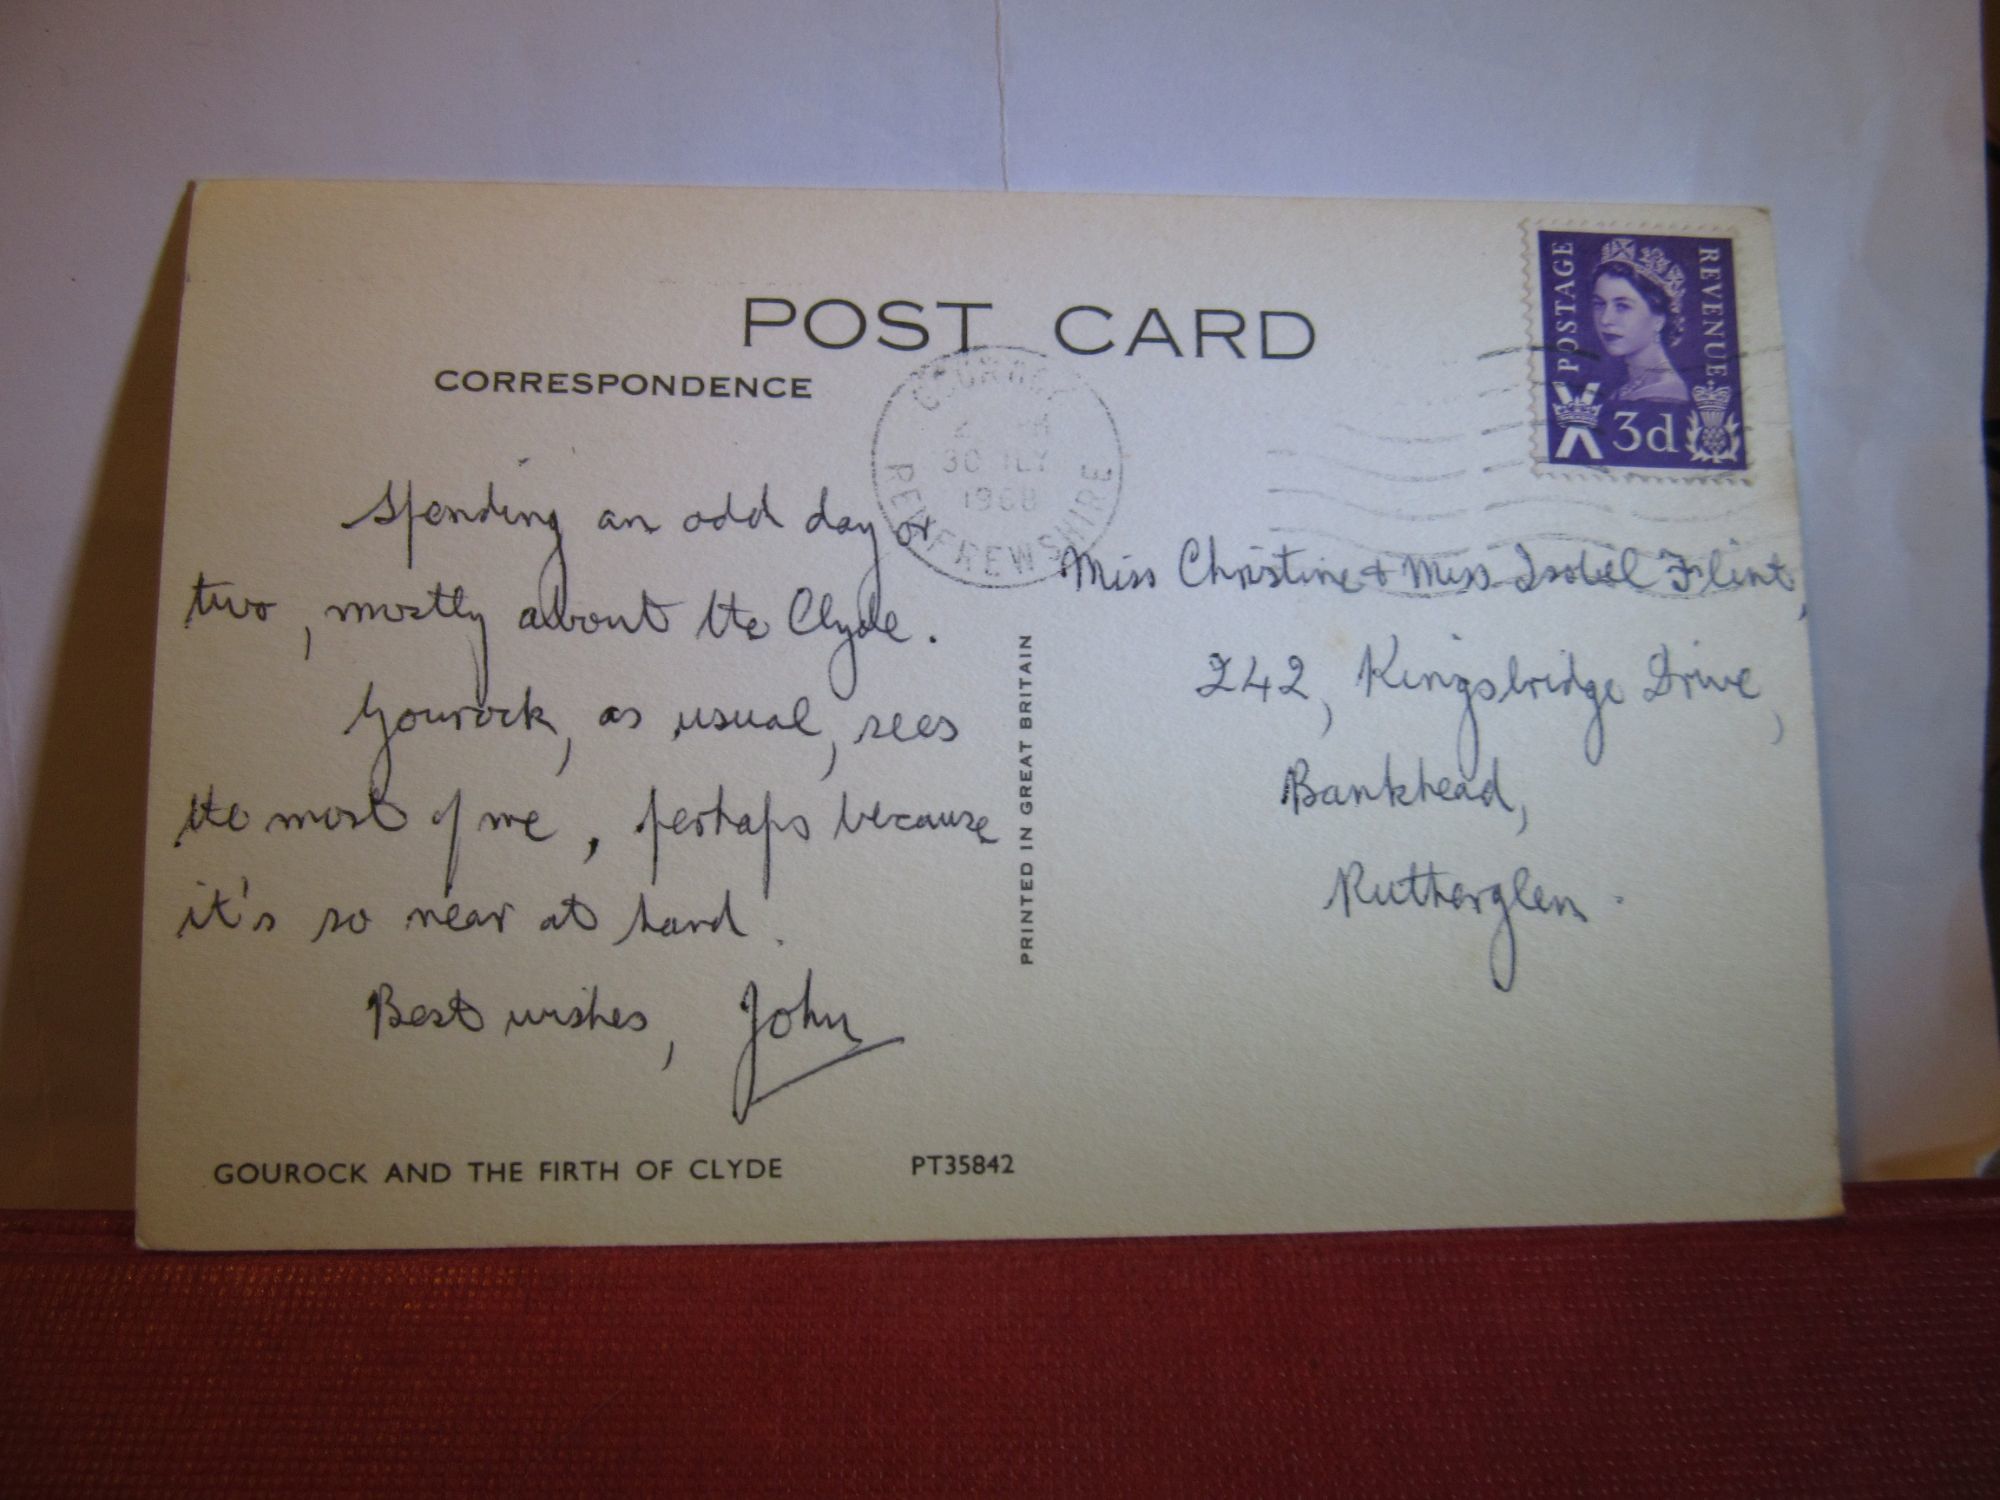 POST CARD
CORRESPONDENCE
POSTAGE
REVENUE
3d
GOUROCK
30 JLY
1968
RENFREWSHIRE
Spending an odd day or
two, mostly about the Clyde.
Gourock, as usual, sees
the most of me, perhaps because
it's so near at hand.
Best wishes, John
Miss Christine & Miss Isobel Flint,
242, Kingsbridge Drive,
Bankhead,
Rutherglen.
PRINTED IN GREAT BRITAIN
GOUROCK AND THE FIRTH OF CLYDE
PT35842